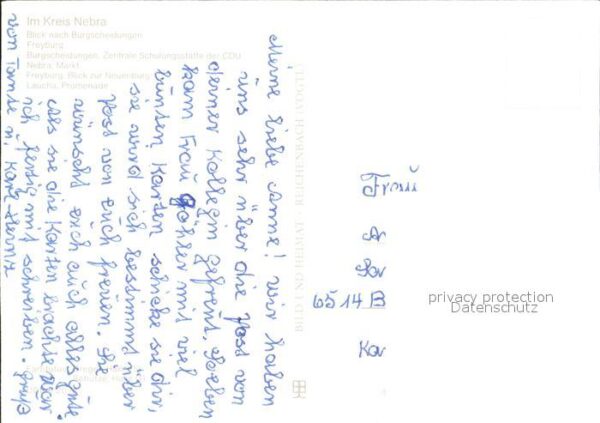 Im Kreis Nebra
Blick nach Burgscheidungen
Freyburg
Burgscheidungen, Zentrale Schulungsstätte der CDU
Nebra, Markt
Freyburg, Blick zur Neuenburg
Laucha, Promenade
Meine liebe Anne! Wir haben
uns sehr über die Post von
deiner Kollegin gefreut. Soeben
kam Frau Göhler mit viel
bunten Karten schicke sie dir,
sie wird sich bestimmt über
Post von euch freuen. Sie
wünscht euch auch alles gute
als sie die Karten brachte war
ich fertig mit schreiben. Gruß
von Tante u. Karl-Heinz
BILD UND HEIMAT · REICHENBACH
Frau
6514 B
privacy protection
Datenschutz